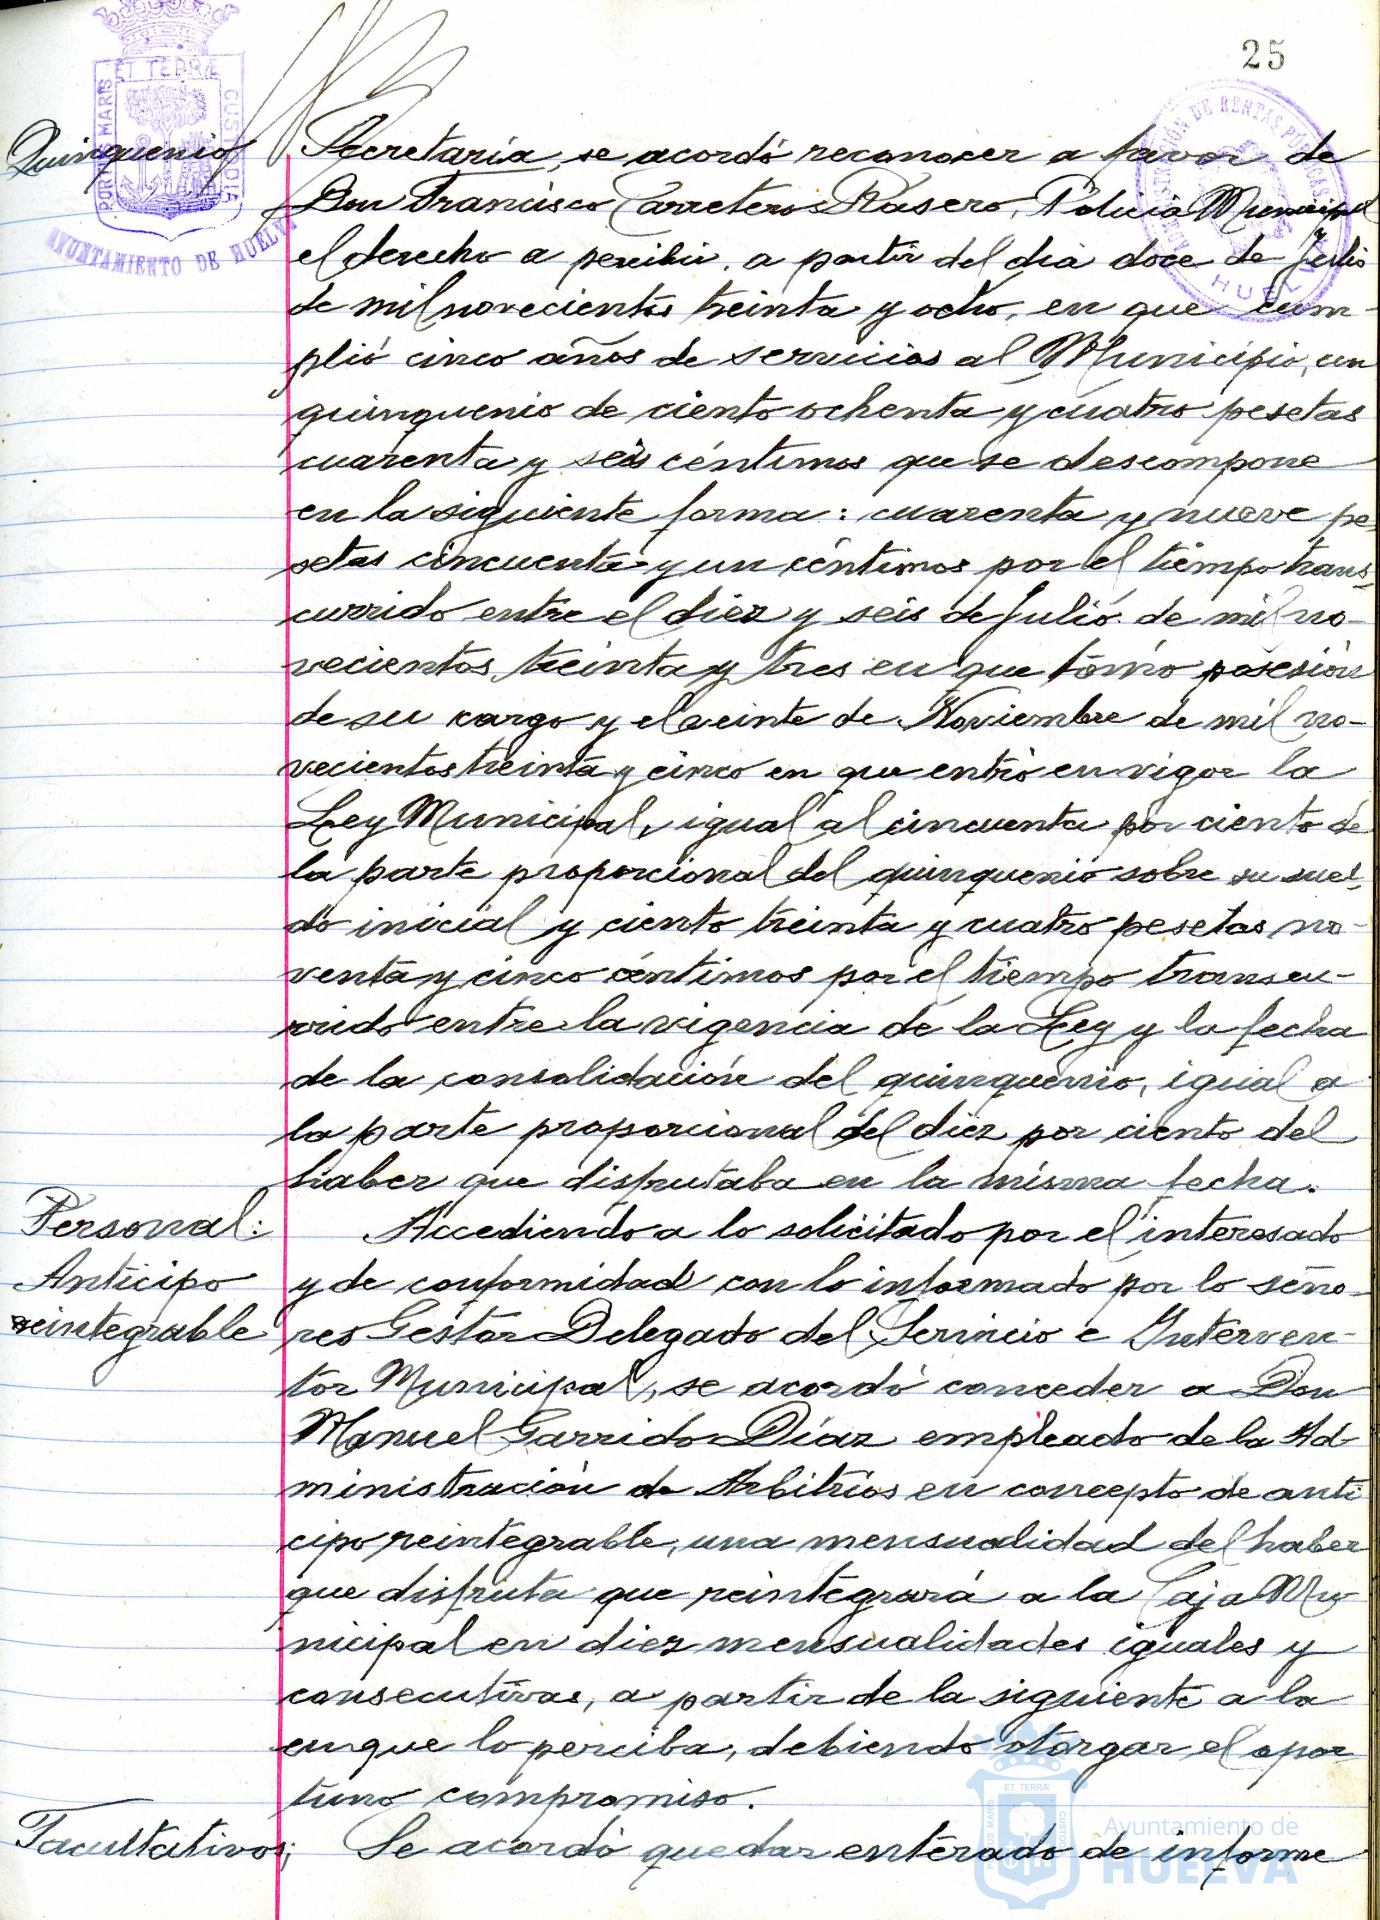 25
ET TERRÆ
PORTUS MARIS
CUSTODIA
AYUNTAMIENTO DE HUELVA
ADMINISTRACIÓN DE RENTAS PÚBLICAS
HUELVA
Quinquenio
Secretaría, se acordó reconocer a favor de
Don Francisco Carretero Rasero, Policía Municipal
el derecho a percibir, a partir del día doce de Julio
de mil novecientos treinta y ocho, en que cum-
plió cinco años de servicios al Municipio, un
quinquenio de ciento ochenta y cuatro pesetas
cuarenta y seis céntimos que se descompone
en la siguiente forma: cuarenta y nueve pe-
setas cincuenta y un céntimos por el tiempo trans-
currido entre el diez y seis de Julio de mil no-
vecientos treinta y tres en que tomó posesión
de su cargo y el veinte de Noviembre de mil no-
vecientos treinta y cinco en que entró en vigor la
Ley Municipal, igual al cincuenta por ciento de
la parte proporcional del quinquenio sobre su suel-
do inicial y ciento treinta y cuatro pesetas no-
venta y cinco céntimos por el tiempo transcu-
rrido entre la vigencia de la Ley y la fecha
de la consolidación del quinquenio, igual a
la parte proporcional del diez por ciento del
haber que disfrutaba en la misma fecha.
Personal:
Anticipo
reintegrable
Accediendo a lo solicitado por el interesado
y de conformidad con lo informado por lo seño-
res Gestor Delegado del Servicio e Interven-
tor Municipal, se acordó conceder a Don
Manuel Garrido Díaz empleado de la Ad-
ministración de Arbitrios en concepto de anti
cipo reintegrable, una mensualidad del haber
que disfruta que reintegrará a la Caja Mu
nicipal en diez mensualidades iguales y
consecutivas, a partir de la siguiente a la
en que lo perciba, debiendo otorgar el opor
tuno compromiso.
Facultativos;
Se acordó quedar enterado de informe
ET TERRÆ
PORTUS MARIS
CUSTODIA
Ayuntamiento de
HUELVA